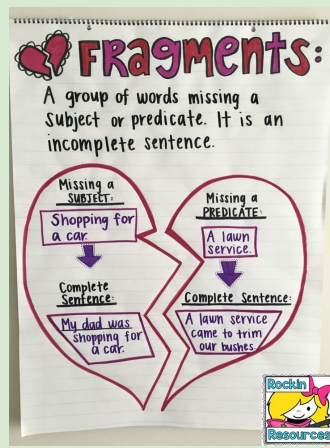 Fragments:
A group of words missing a
subject or predicate. It is an
incomplete sentence.
Missing a
SUBJECT:
Shopping for
a car.
Complete
Sentence:
My dad was
shopping for
a car.
Missing a
PREDICATE:
A lawn
service.
Complete Sentence:
A lawn service
came to trim
our bushes.
Rockin
Resources